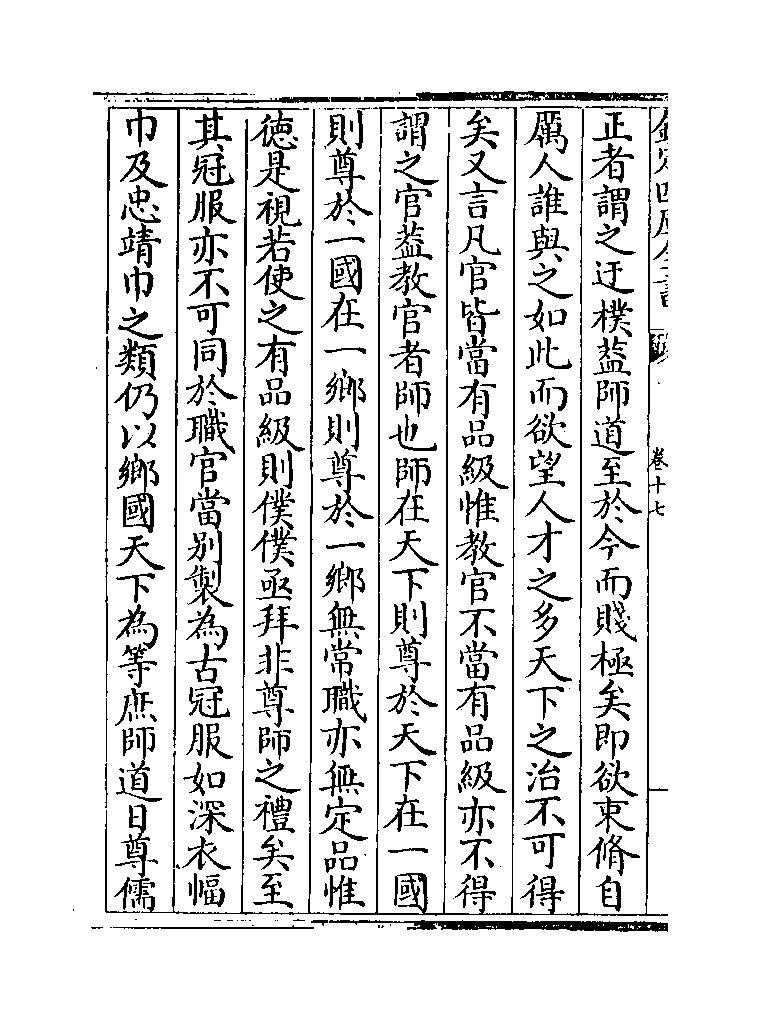 欽定四庫全書
卷十七
正者謂之迂樸葢師道至於今而賤極矣即欲束脩自
厲人誰與之如此而欲望人才之多天下之治不可得
矣又言凡官皆當有品級惟教官不當有品級亦不得
謂之官葢教官者師也師在天下則尊於天下在一國
則尊於一國在一鄉則尊於一鄉無常職亦無定品惟
徳是視若使之有品級則僕僕亟拜非尊師之禮矣至
其冠服亦不可同於職官當别製為古冠服如深衣幅
巾及忠靖巾之類仍以鄉國天下為等庶師道日尊儒